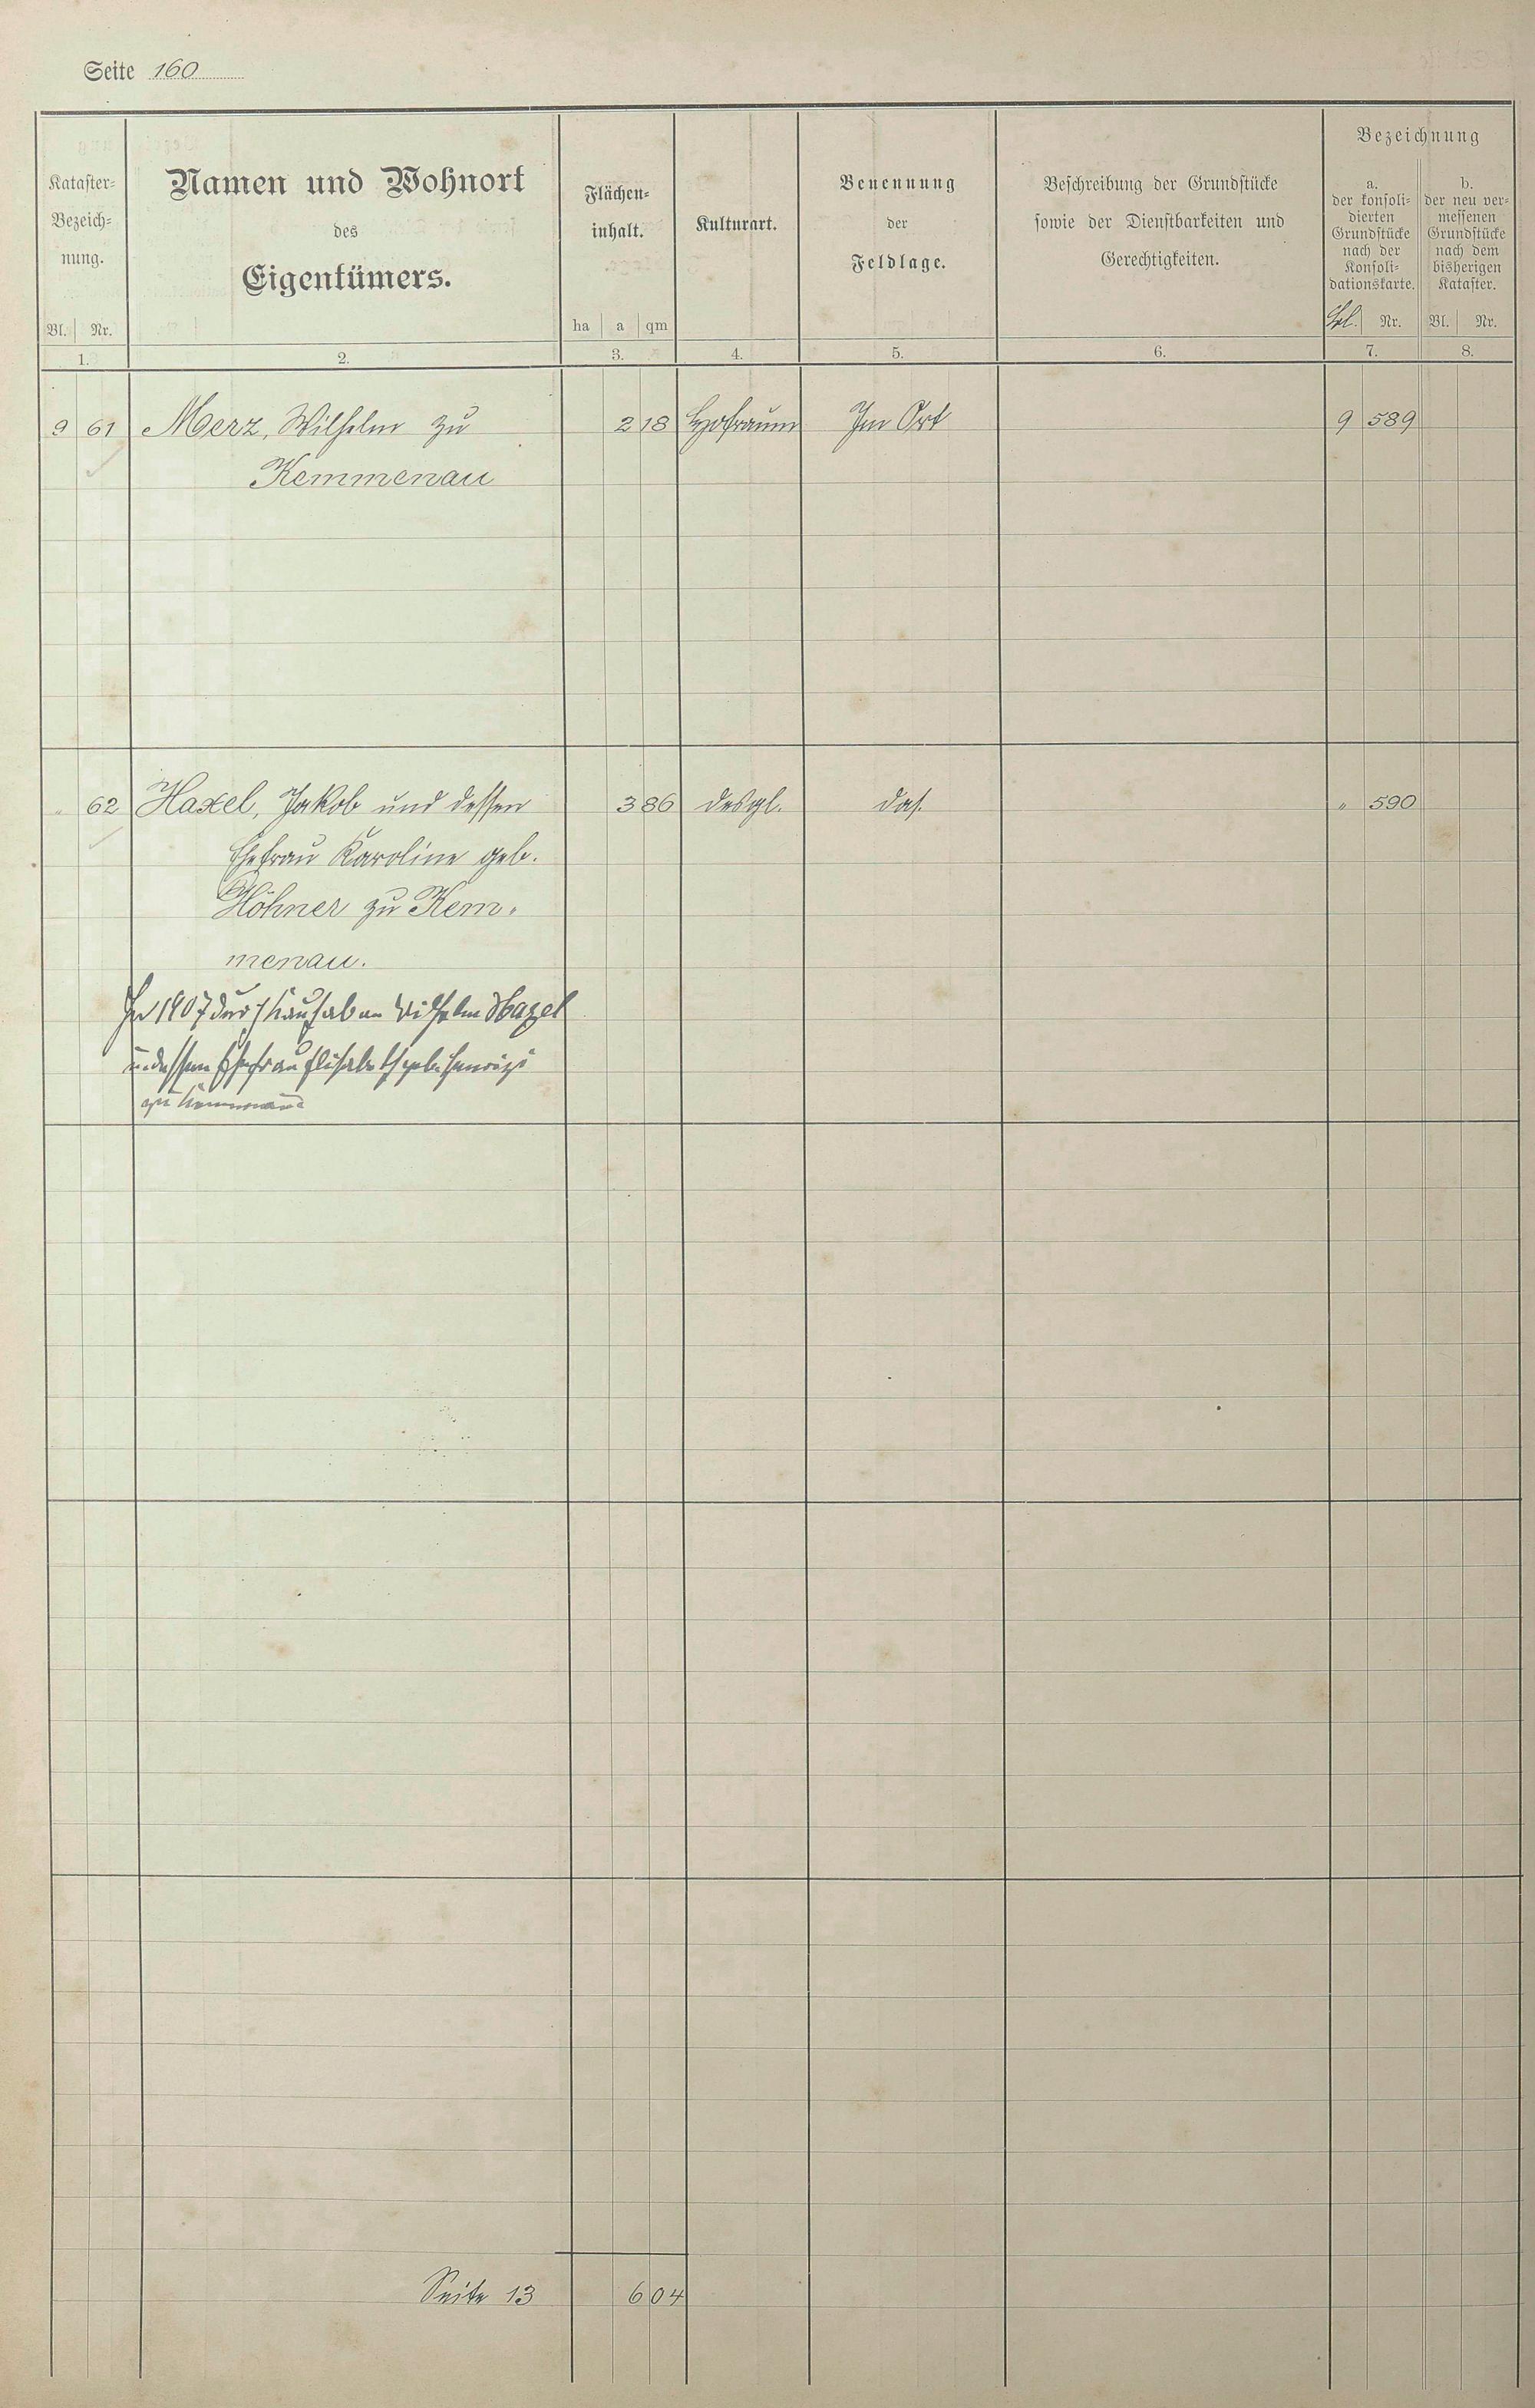 Seite 160
Kataster-
Bezeich-
nung.
Bl. Nr.
1.
Namen und Wohnort
des
Eigentümers.
2.
Flächen-
inhalt.
ha a qm
3.
Kulturart.
4.
Benennung
der
Feldlage.
5.
Beschreibung der Grundstücke
sowie der Dienstbarkeiten und
Gerechtigkeiten.
6.
Bezeichnung
a.
der konsoli-
dierten
Grundstücke
nach der
Konsoli-
dationskarte.
Nr.
7.
b.
der neu ver-
messenen
Grundstücke
nach dem
bisherigen
Kataster.
Bl. Nr.
8.
9 61 Merz, Wilhelm zu 2 18 Hofraum Im Ort 9 589
Kemmenau
" 62 Haxel, Jakob und dessen 3 86 desgl. das. " 590
Ehefrau Karoline geb.
Höhner zu Kem-
menau.
In 1907 durch Kauf ab an Wilhelm Haxel
u. dessen Ehefrau Elisabeth geb.
zu Kemmenau
Seite 13 6 04